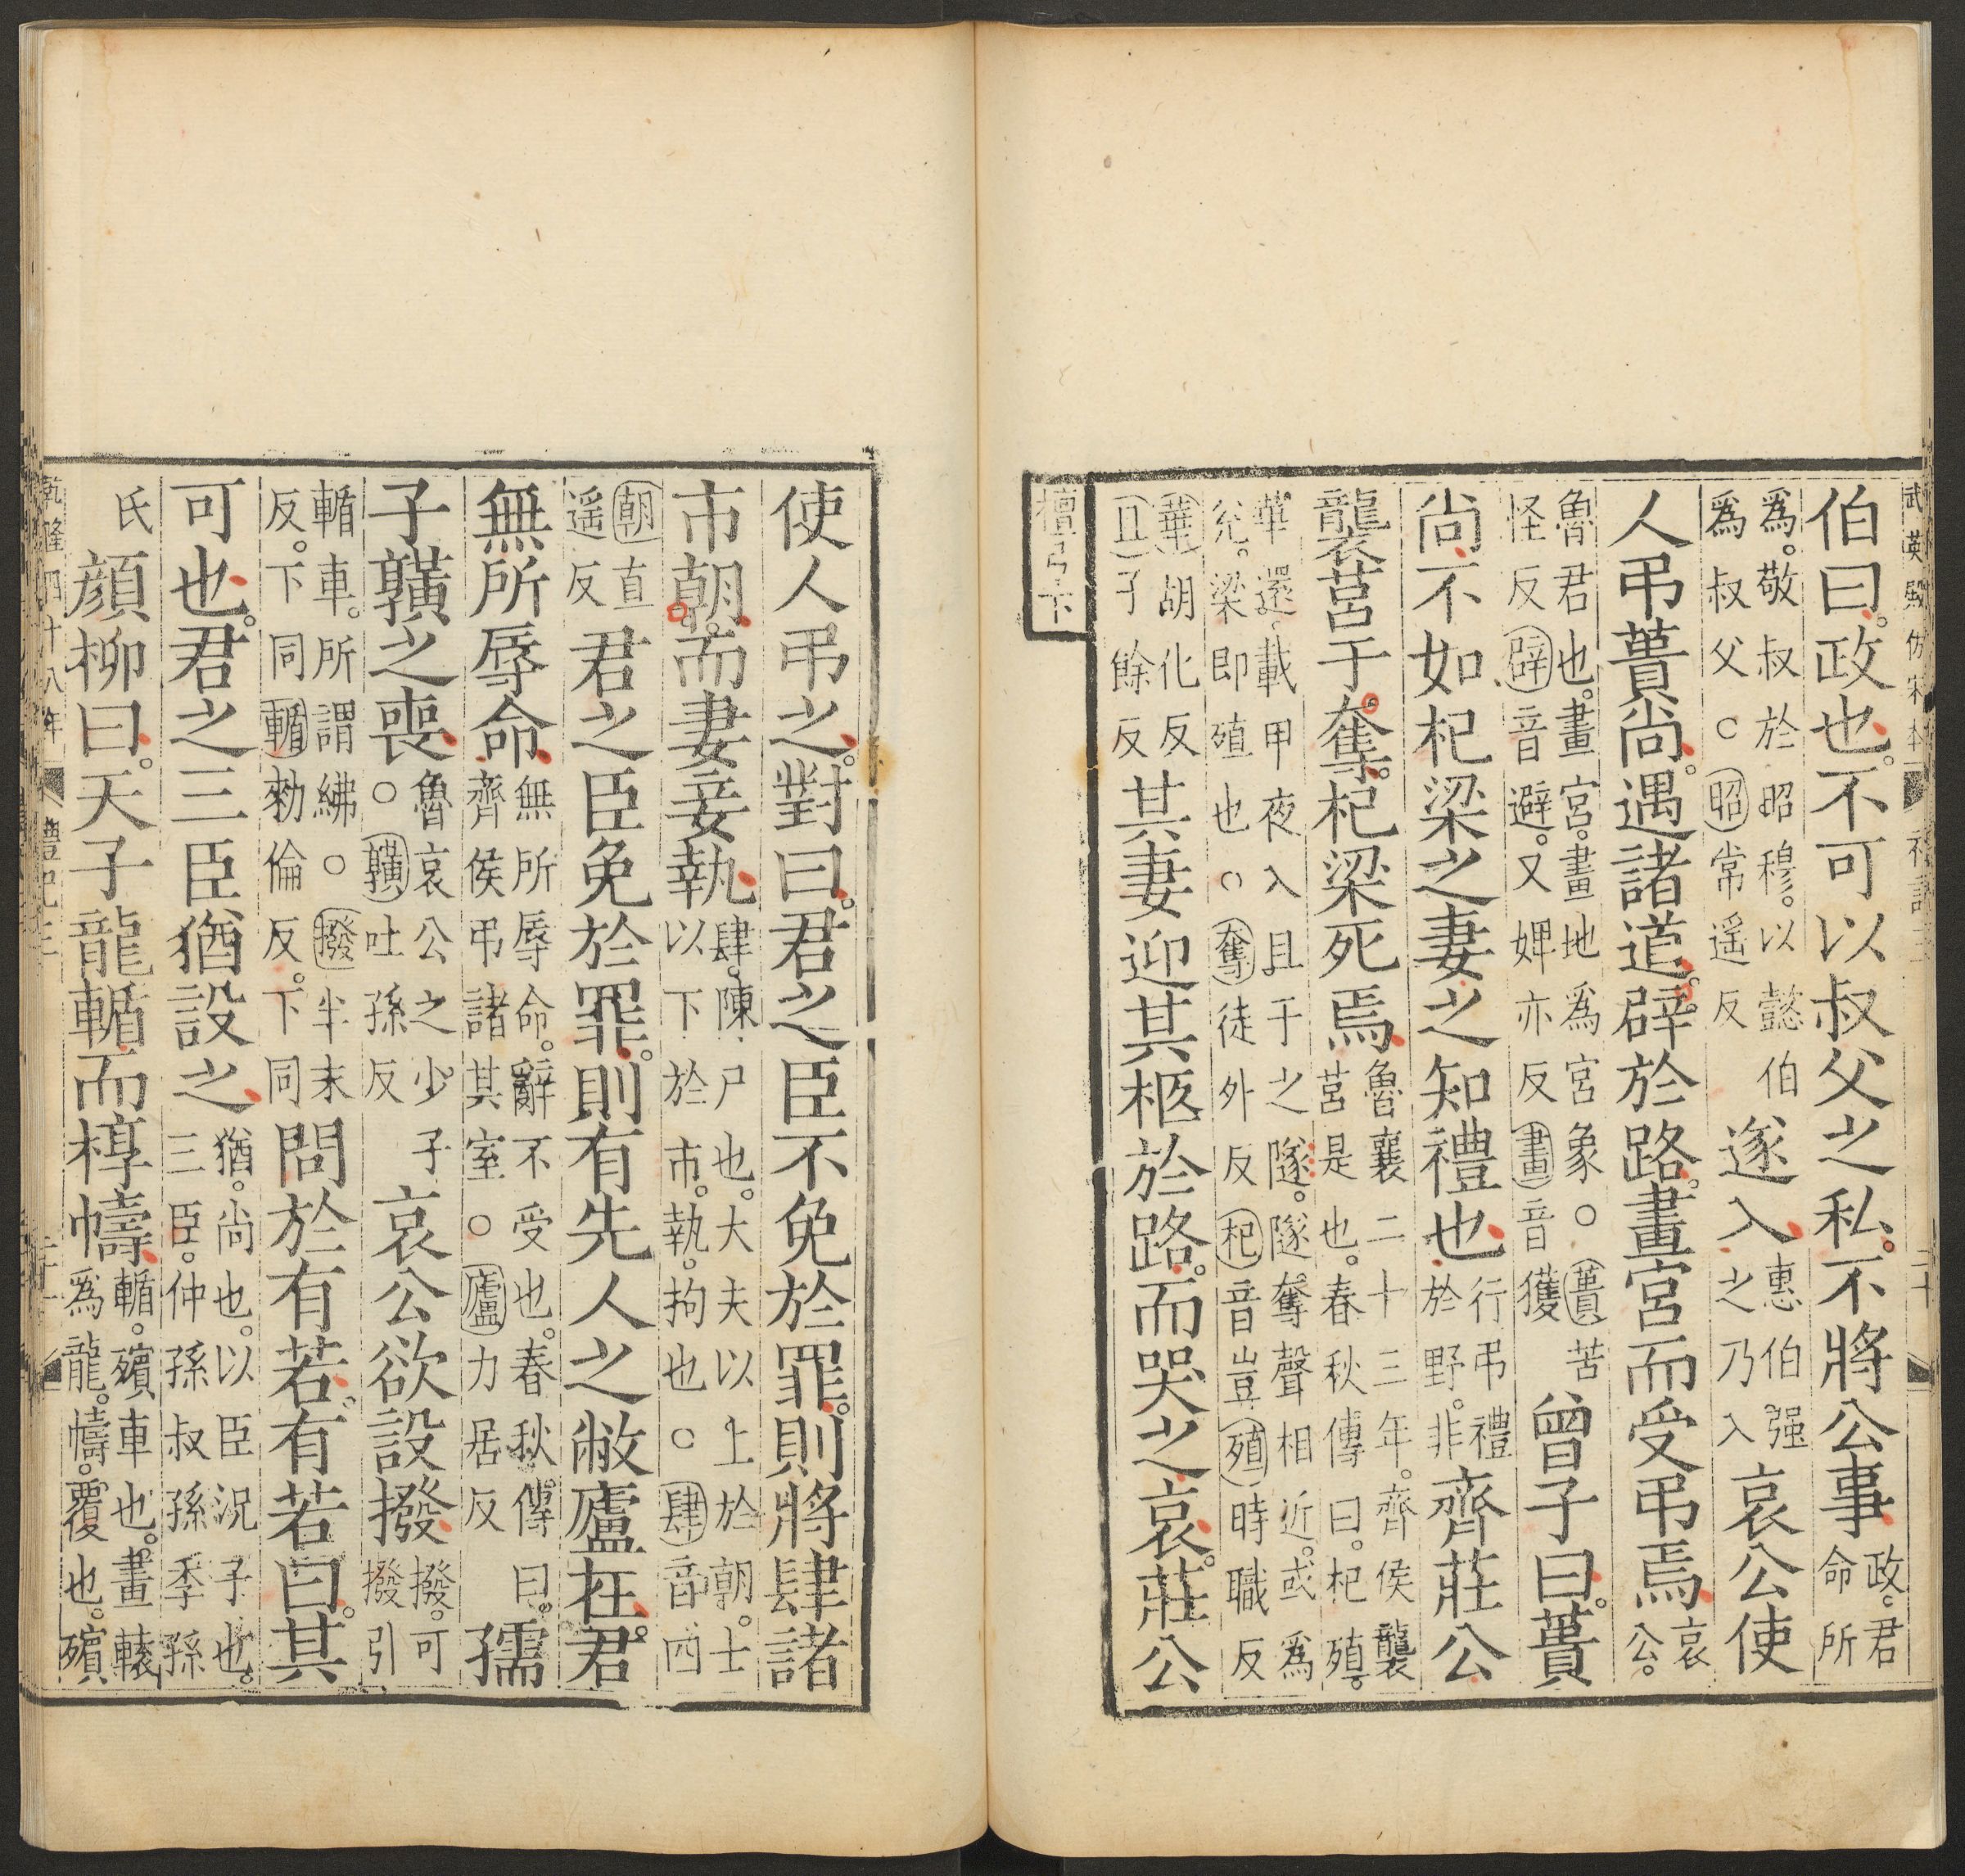 武英殿仿宋本 禮記三 二十
伯曰。政也。不可以叔父之私。不將公事
政。君
命所
爲。敬叔於昭穆。以懿伯
爲叔父○昭常遥反
遂入
惠伯强
之乃入
哀公使
人弔蕢尚。遇諸道。辟於路。畫宮而受弔焉
哀
公。
魯君也。畫宮。畫地爲宮象○蕢苦
怪反辟音避。又婢亦反畫音獲
曾子曰。蕢
尚不如杞梁之妻之知禮也
行弔禮
於野。非
齊莊公
襲莒于奪。杞梁死焉
魯襄二十三年。齊侯襲
莒是也。春秋傳曰。杞殖。
華還。載甲夜入且于之隧。隧奪聲相近。或爲
兊。梁即殖也○奪徒外反杞音豈殖時職反
華胡化反
且子餘反
其妻迎其柩於路。而哭之哀。莊公
檀弓下
使人弔之。對曰。君之臣不免於罪。則將肆諸
市朝。而妻妾執
肆。陳尸也。大夫以上於朝。士
以下於市。執。拘也○肆音四
朝直
遥反
君之臣免於罪。則有先人之敝廬在。君
無所辱命
無所辱命。辭不受也。春秋傳曰。
齊侯弔諸其室○廬力居反
孺
子䵍之喪
魯哀公之少子
○䵍吐孫反
哀公欲設撥
撥。可
撥引
輴車。所謂紼○撥半末
反。下同輴勑倫反。下同
問於有若。有若曰。其
可也。君之三臣猶設之
猶。尚也。以臣況子也。
三臣。仲孫叔孫季孫
氏
顏柳曰。天子龍輴而椁幬
輴。殯車也。畫轅
爲龍。幬。覆也。殯
乾隆四十八年 禮記三 二十一